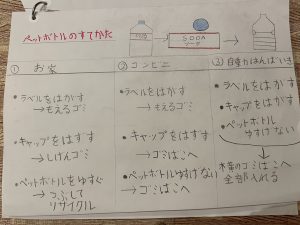 ペットボトルのすてかた
SODA
ソーダ
① お家
② コンビニ
③ 自動はんばいき
・ラベルをはがす
→もえるゴミ
・キャップをはずす
→しげんゴミ
・ペットボトルをゆすぐ
→つぶして
リサイクル
・ラベルをはがす
→もえるゴミ
・キャップをはずす
→ゴミばこへ
・ペットボトルゆすげない
→ゴミばこへ
・ラベルをはがす
・キャップをはずす
・ペットボトル
ゆすげない
ゴミばこへ
全部入れる